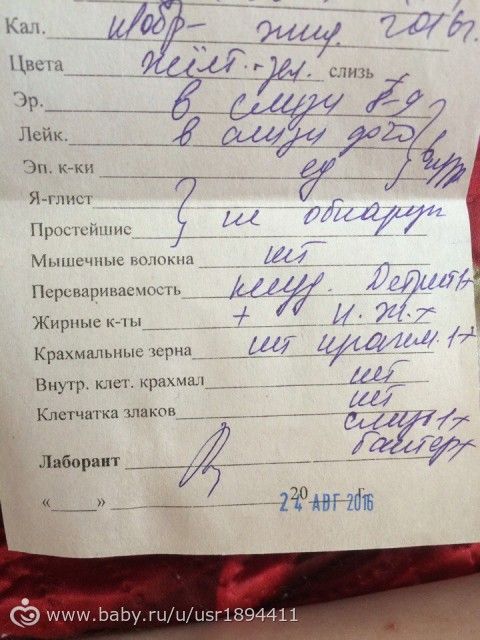 Кал. 2016г.
Цвета жёлт.-зел. слизь
Эр. в слизи 8-9
Лейк. в слизи до 40
Эп. к-ки ед
Я-глист
Простейшие не обнаруж
Мышечные волокна нет
Перевариваемость Детрит 1+
Жирные к-ты + н.ж.+
Крахмальные зерна нет 1+
Внутр. клет. крахмал нет
Клетчатка злаков нет
слизь 1+
Лаборант бактер+
“ ” 20 г.
24 АВГ 2016
www.baby.ru/u/usr1894411